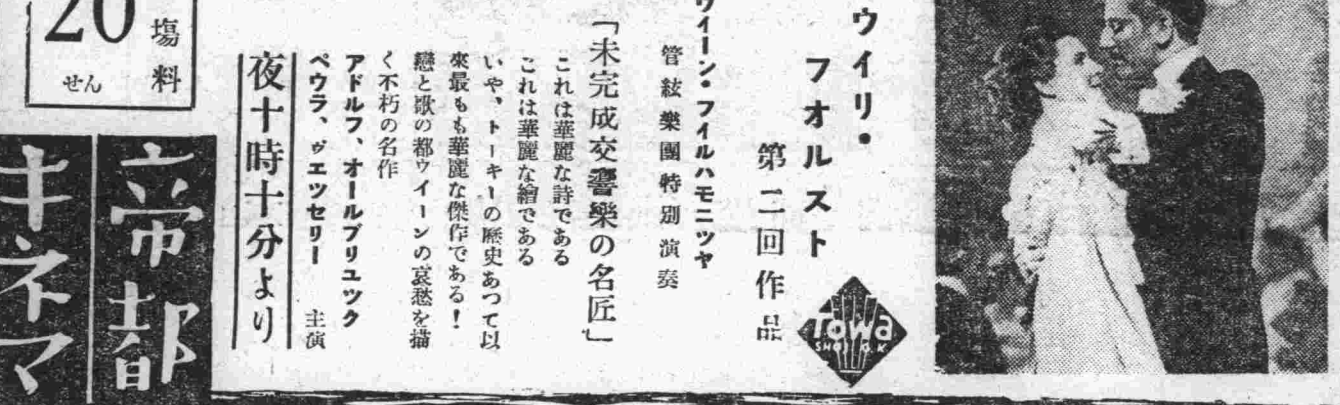 ウイリ・
フオルスト
第二回作品
ウイーン・フイルハモニツヤ
管絃樂團特別演奏
「未完成交響樂の名匠」
これは華麗な詩である
これは華麗な繪である
いや、トーキーの歴史あつて以
來最も華麗な傑作である!
戀と歌の都ウイーンの哀愁を描
く不朽の名作
アドルフ、オールブリユツク
ペウラ、ヴエツセリー 主演
夜十時十分より
場料
20
せん
帝都
キネマ
Towa
SHOJI G.K.